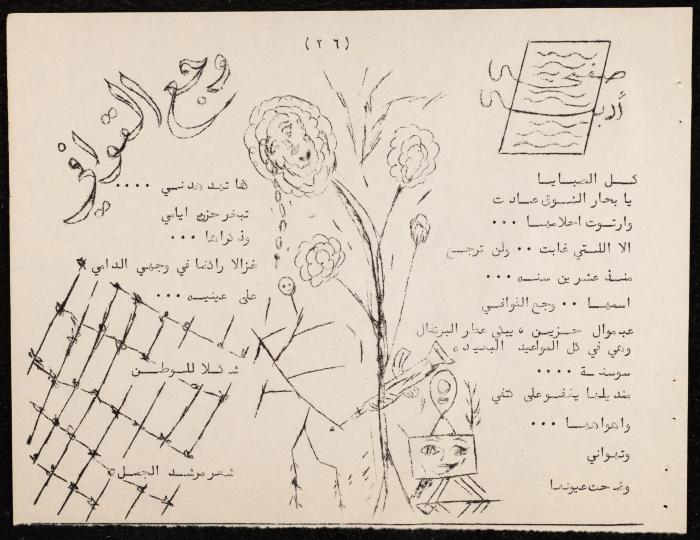 (٢٦)
صفحة
أدب
وجع القوافي
كل الصبايا
يا بحار الشوق عادت
وارتوت احلامها ...
الا اللتي غابت .. ولن ترجع
منذ عشرين سنه ...
اسمها .. وجع القوافي
موال حزين يبكي عطر البرتقال
وهي في كل المواعيد البعيده
سوسنة ....
منديلها يغفو على كتفي
واهواها ...
وتهواني
ها تبدهدني ....
تبخر حزن ايامي
وذكراها ...
غزالا راكضا في وجهي الدامي
على عينيه ...
شكلا للوطن
شعر مرشد الجمل